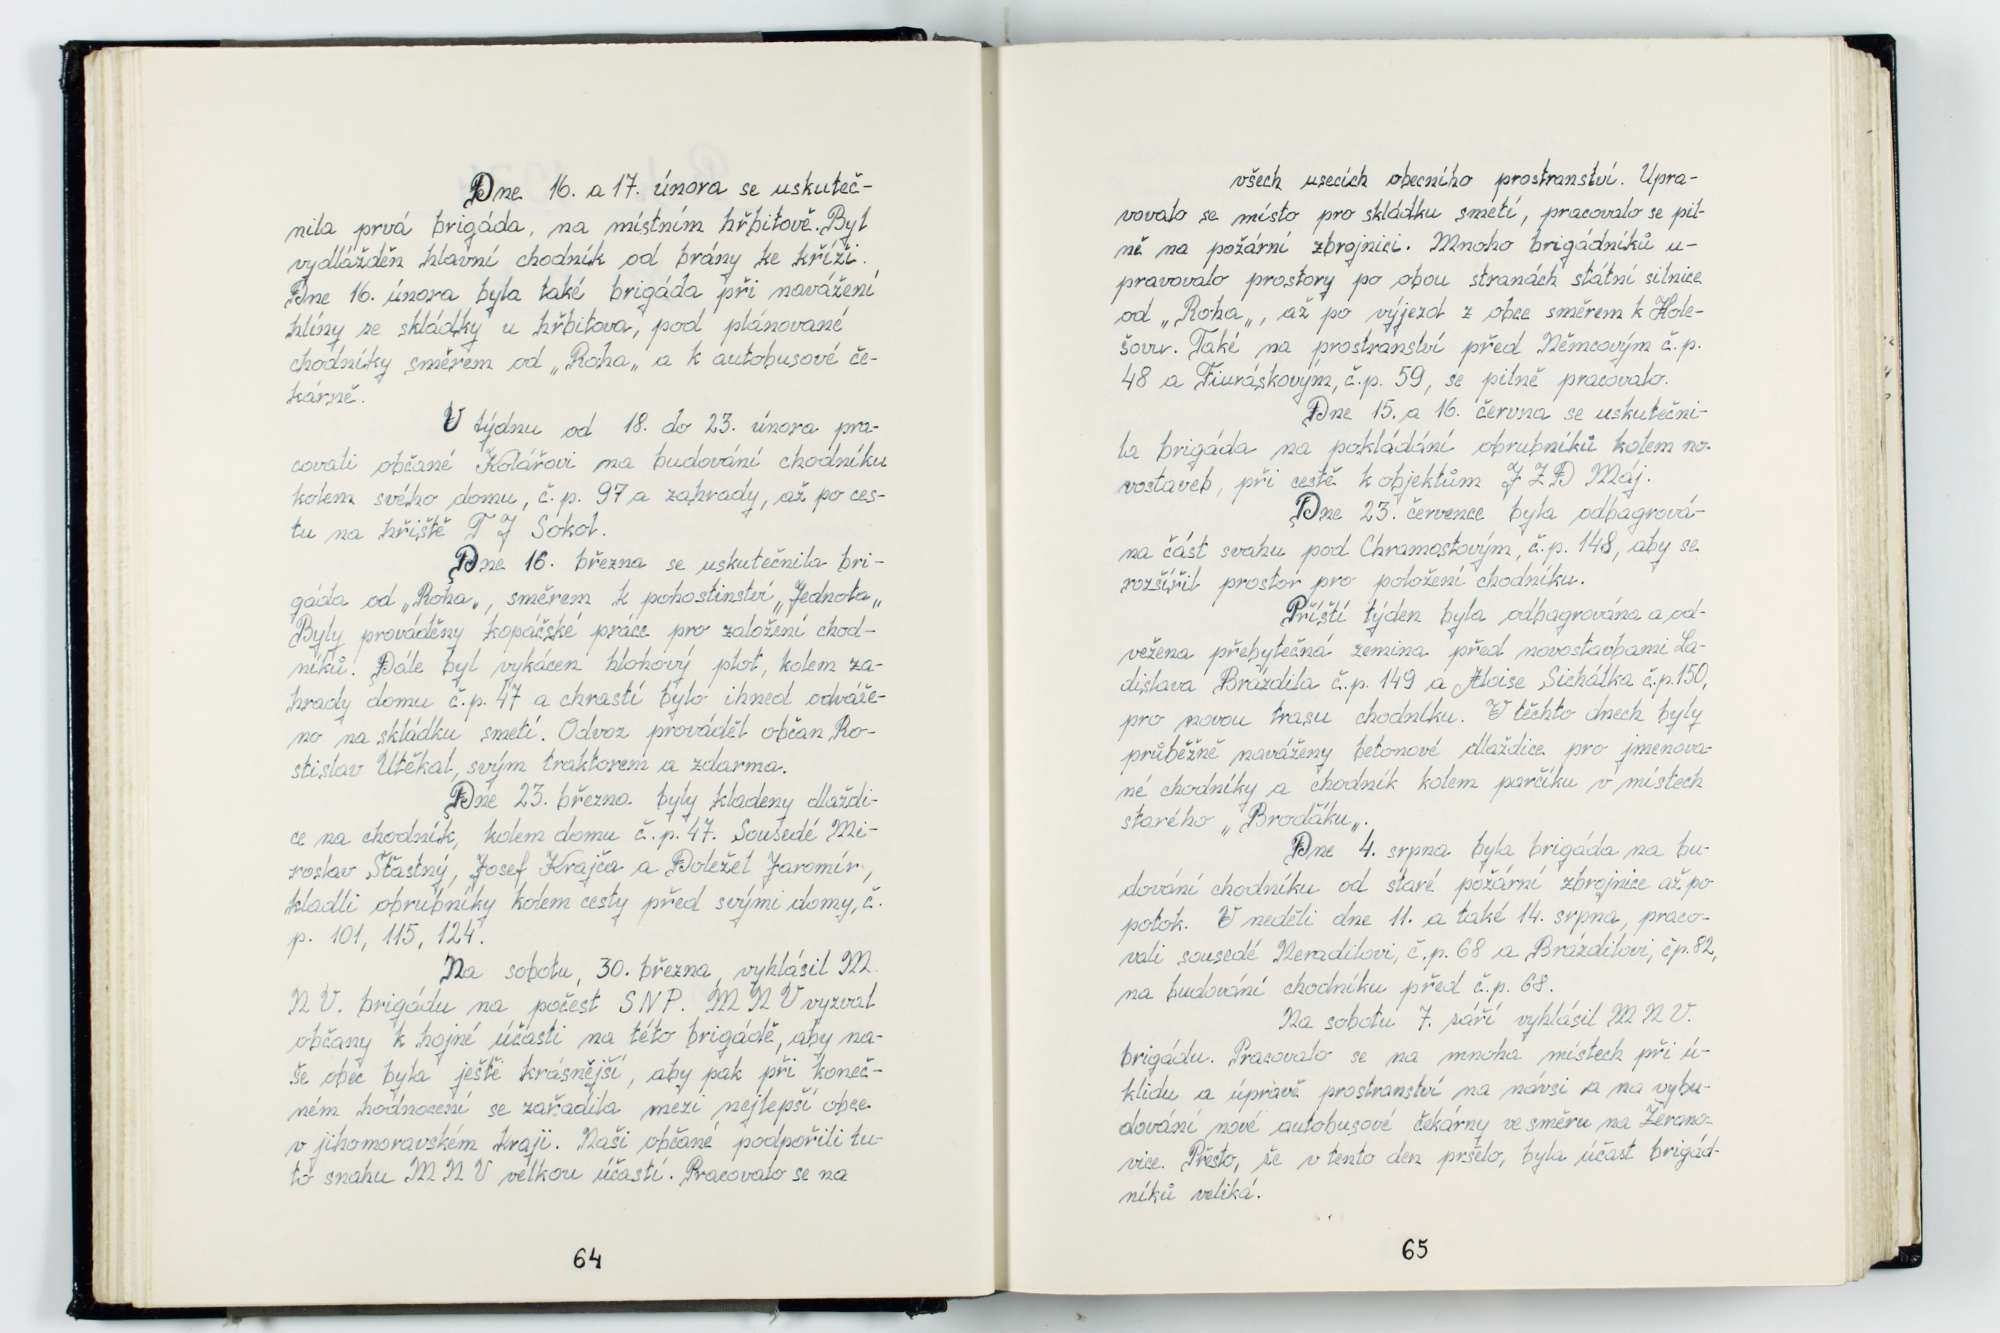 Dne 16. a 17. února se uskuteč-
nila prvá brigáda, na místním hřbitově. Byl
vydlážděn hlavní chodník od brány ke kříži.
Dne 16. února byla také brigáda při navážení
hlíny ze skládky u hřbitova, pod plánované
chodníky směrem od „Roha„ a k autobusové če-
kárně.
V týdnu od 18. do 23. února pra-
covali občané Kolářovi na budování chodníku
kolem svého domu, č.p. 97 a zahrady, až po ces-
tu na hřiště T J Sokol.
Dne 16. března se uskutečnila bri-
gáda od „Roha„, směrem k pohostinství „Jednota„
Byly prováděny kopáčské práce pro založení chod-
níků. Dále byl vykácen hlohový plot, kolem za-
hrady domu č.p. 47 a chrastí bylo ihned odváže-
no na skládku smetí. Odvoz prováděl občan Ro-
stislav Utěkal, svým traktorem a zdarma.
Dne 23. března byly kladeny dlaždi-
ce na chodník, kolem domu č.p. 47. Sousedé Mi-
roslav Šťastný, Josef Krajča a Doležel Jaromír,
kladli obrubníky kolem cesty před svými domy, č.
p. 101, 115, 124.
Na sobotu, 30. března, vyhlásil M
N V. brigádu na počest SNP. M N V vyzval
občany k hojné účasti na této brigádě, aby na-
še obec byla ještě krásnější, aby pak při koneč-
ném hodnocení se zařadila mezi nejlepší obce
v jihomoravském kraji. Naši občané podpořili tu-
to snahu M N V velkou účastí. Pracovalo se na
64
všech usecích obecního prostranství. Upra-
vovalo se místo pro skládku smetí, pracovalo se pil-
ně na požární zbrojnici. Mnoho brigádníků u-
pravovalo prostory po obou stranách státní silnice
od „Roha„, až po výjezd z obce směrem k Hole-
šovu. Také na prostranství před Němcovým č.p.
48 a Fiuráskovým, č.p. 59, se pilně pracovalo.
Dne 15. a 16. června se uskutečni-
la brigáda na pokládání obrubníků kolem no-
vostaveb, při cestě k objektům J Z D Máj.
Dne 23. července byla odbagrová-
na část svahu pod Chramostovým, č.p. 148, aby se
rozšířil prostor pro položení chodníku.
Příští týden byla odbagrována a od-
vežena přebytečná zemina před novostavbami La-
dislava Brázdila č.p. 149 a Aloise Sichálka č.p. 150,
pro novou trasu chodníku. V těchto dnech byly
průběžně naváženy betonové dlaždice pro jmenova-
né chodníky a chodník kolem parčíku v místech
starého „Brodáku„.
Dne 4. srpna byla brigáda na bu-
dování chodníku od staré požární zbrojnice až po
potok. V neděli dne 11. a také 14. srpna, praco-
vali sousedé Neradilovi, č.p. 68 a Brázdilovi, čp. 82,
na budování chodníku před č.p. 68.
Na sobotu 7. září vyhlásil M N V.
brigádu. Pracovalo se na mnoha místech při ú-
klidu a úpravě prostranství na návsi a na vybu-
dování nové autobusové čekárny ve směru na Žerano-
vice. Přesto, že v tento den pršelo, byla účast brigád-
níků veliká.
65